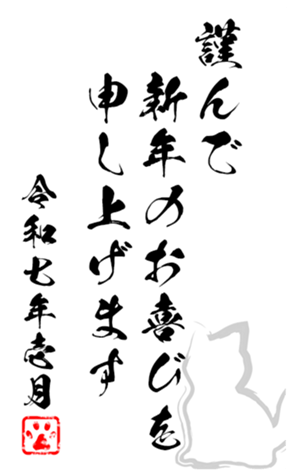 謹んで
新年のお喜びを
申し上げます
令和七年壱月